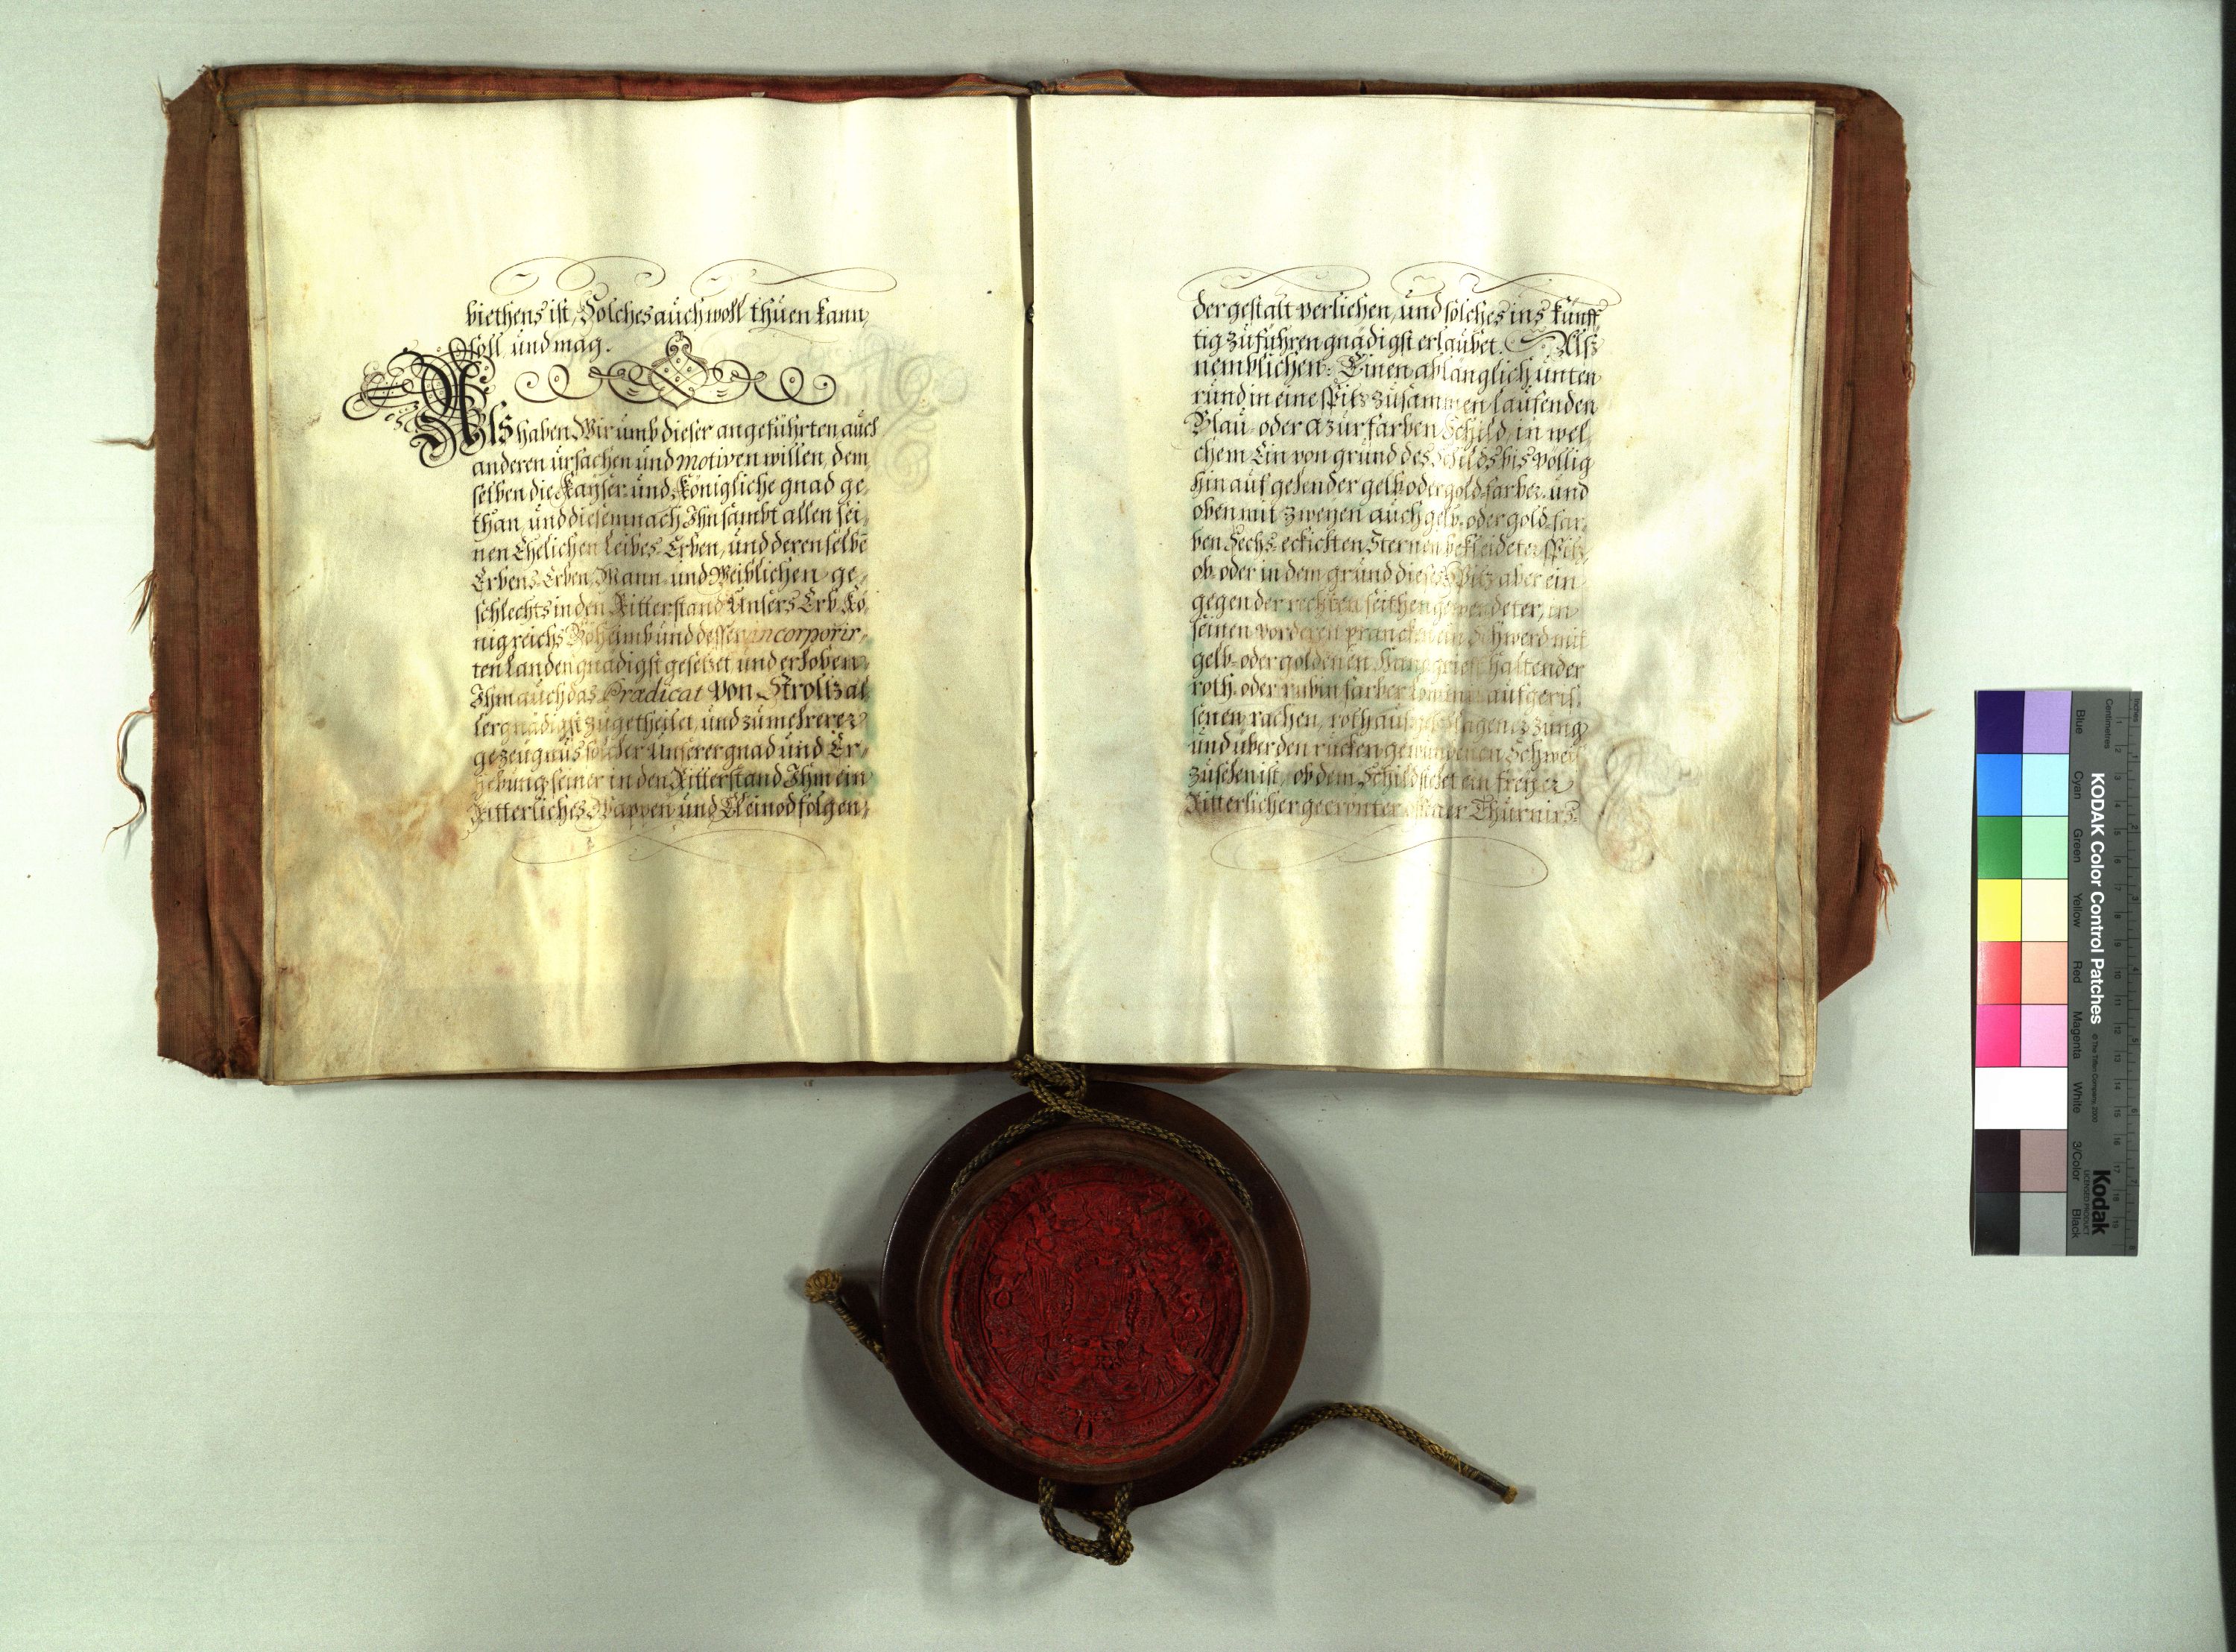 biethens ist, Solches auch woll thuen kann,
soll, und mag.
Als haben Wir umb dieser angeführten, auch
anderen ursachen und motiven willen, dem,
selben die Kayser: und Königliche gnad ge,
than, und diesemnach Ihn sambt allen sei,
nen Ehelichen Leibes Erben, und derenselbē
Erbens Erben, Mann- und Weiblichen ge,
schlechts in den Ritterstand Unsers Erb Kö,
nigreichs Böheimb und dessen incorporir,
ten Landen gnädigst gesetzet und erhoben,
Ihm auch das Prædicat von Strollz al,
lergnädigst zugetheilet, und zu mehrerer
gezeugnüs solcher Unserer gnad und Er,
hebung seiner in den Ritterstand Ihm ein
Ritterliches Wappen und Cleinod folgen,
der gestalt verliehen, und solches ins künff
tig zuführen gnädigst erlaubet. Alß
nemblichen: Einen ablänglich, unten
rund in eine Spitz zusammen laufenden
Blau- oder azurfarben Schild, in wel,
chem Ein von grund des Schilds bis völlig
hinauf gehender gelb- oder goldfarber- und
oben mit zweyen auch gelb- oder goldfar,
ben Sechs eckichten Sternen bekleideter Spitz,
ob- oder in dem grund dieses Spitz aber ein
gegen der rechten seithen gewendeter, in
seinen vorderen prancken ein Schwerd mit
gelb- oder goldenen Handgrieff haltender
roth- oder rubinfarber Löw mit aufgeris,
senen rachen, roth ausgeschlagener zung
und über den rücken gewundenen Schweif
zusehen ist, ob dem Schild stehet ein freyer
Ritterlicher gecrönter offener Thurnirs-
KODAK Color Control Patches
© The Tiffen Company, 2000
Kodak
LICENSED PRODUCT
Inches
Centimetres
Blue
Cyan
Green
Yellow
Red
Magenta
White
3/Color
Black